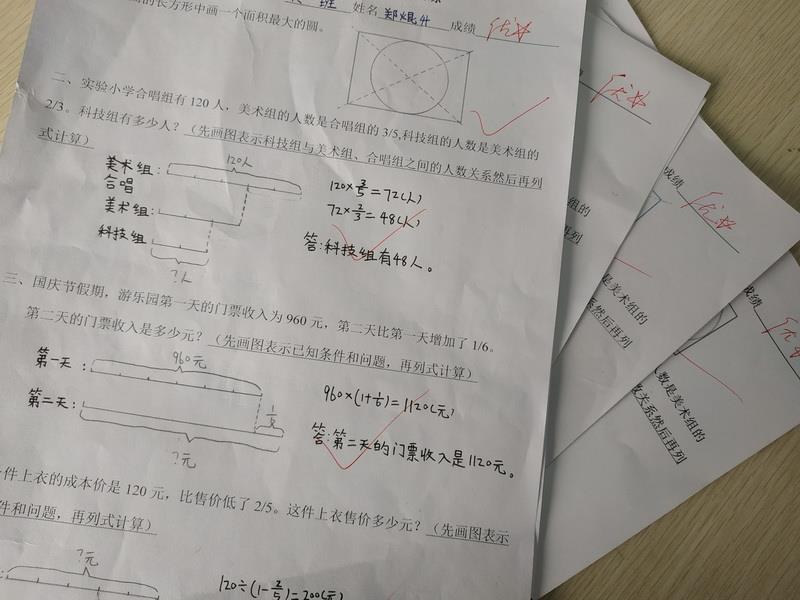 班 姓名 郑焜升 成绩 优☆
的长方形中画一个面积最大的圆。
二、实验小学合唱组有 120 人，美术组的人数是合唱组的 3/5,科技组的人数是美术组的
2/3。科技组有多少人？（先画图表示科技组与美术组、合唱组之间的人数关系然后再列
式计算）
120人
美术组：
合唱
美术组：
科技组：
?人
120×3/5=72(人)
72×2/3=48(人)
答：科技组有48人。
三、国庆节假期，游乐园第一天的门票收入为 960 元，第二天比第一天增加了 1/6。
第二天的门票收入是多少元？（先画图表示已知条件和问题，再列式计算）
960元
第一天：
第二天：
?元
960×(1+1/6)=1120(元)
答：第二天的门票收入是1120元。
件上衣的成本价是 120 元，比售价低了 2/5。这件上衣售价多少元？（先画图表示
件和问题，再列式计算）
?元
120÷(1-2/5)=200(元)
优☆
成绩 优☆
成绩 优
组的
再列
是美术组的
系然后再列
人数是美术组的
数关系然后再列